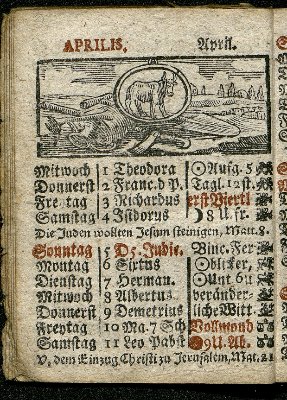 APRILIS, April.
Mitwoch 1 Theodora ☉Aufg. 5
Donnerst 2 Franc. d P. Tagl. 12 st.
Freytag 3 Richardus erst Viertl
Samstag 4 Isidorus ☽ 8 U. fr.
Die Juden wolten Jesum steinigen, Matt. 8.
Sonntag 5 D5. Judic. Vinc. Fer
Montag 6 Sixtus ☉blicker,
Dienstag 7 Herman. ☉Unt 6 u
Mitwoch 8 Albertus veränder-
Donnerst 9 Demetrius liche Witt.
Freytag 10 Ma. 7 Sch Vollmond
Samstag 11 Leo Pabst 9 U. Ab.
V. dem Einzug Christi zu Jerusalem, Mat. 21